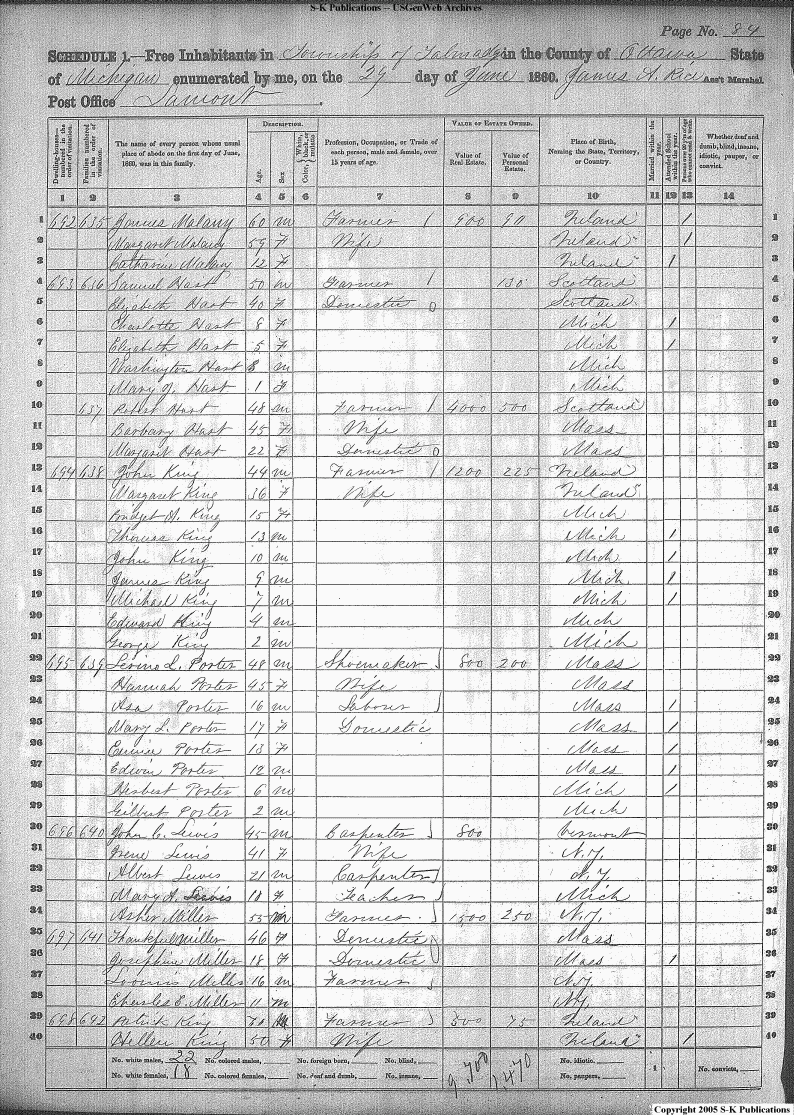 S-K Publications -- USGenWeb Archives
Page No. 84
SCHEDULE 1.—Free Inhabitants in Township of Talmadge in the County of Ottawa State
of Michigan enumerated by me, on the 29 day of June 1860. James A. Rice Ass't Marshal.
Post Office Lamont.
Dwelling-houses—numbered in the order of visitation.
Families numbered in the order of visitation.
The name of every person whose usual place of abode on the first day of June, 1860, was in this family.
DESCRIPTION.
Age.
Sex
Color, White, black, or mulatto
Profession, Occupation, or Trade of each person, male and female, over 15 years of age.
VALUE OF ESTATE OWNED.
Value of Real Estate.
Value of Personal Estate.
Place of Birth, Naming the State, Territory, or Country.
Married within the year.
Attended School within the year.
Persons over 20 y'rs of age who cannot read & write.
Whether deaf and dumb, blind, insane, idiotic, pauper, or convict.
1 2 3 4 5 6 7 8 9 10 11 12 13 14
1 692 635 James Malany 60 m Farmer / 900 90 Ireland / 1
2 Margaret Malany 59 F Wife Ireland / 2
3 Catharine Malany 12 F Ireland / 3
4 693 636 Samuel Hart 50 m Farmer / 130 Scotland 4
5 Elizabeth Hart 40 F Domestic 0 Scotland 5
6 Charlotte Hart 8 F Mich / 6
7 Elizabeth Hart 5 F Mich / 7
8 Washington Hart 8 m Mich 8
9 Mary J. Hart 1 F Mich 9
10 637 Robert Hart 48 m Farmer / 4000 500 Scotland 10
11 Barbary Hart 45 F Wife Mass 11
12 Margaret Hart 22 F Domestic 0 Mass 12
13 694 638 John King 44 m Farmer / 1200 225 Ireland 13
14 Margaret King 36 F Wife Ireland 14
15 Bridget A. King 15 F Mich 15
16 Thomas King 13 m Mich / 16
17 John King 10 m Mich / 17
18 James King 9 m Mich / 18
19 Michael King 7 m Mich / 19
20 Edward King 4 m Mich 20
21 George King 2 m Mich 21
22 695 639 Levino L. Porter 48 m Shoemaker / 800 200 Mass 22
23 Hannah Porter 45 F Wife Mass 23
24 Asa Porter 16 m Labour / Mass / 24
25 Mary L. Porter 17 F Domestic Mass / 25
26 Eunice Porter 13 F Mass / 26
27 Edwin Porter 12 m Mass / 27
28 Herbert Porter 6 m Mich / 28
29 Gilbert Porter 2 m Mich 29
30 696 640 John C. Lewis 45 m Carpenter / 800 Vermont 30
31 Irene Lewis 41 F Wife N.Y. 31
32 Albert Lewis 21 m Carpenter / N.Y. 32
33 Mary A. Lewis 18 F Teacher / Mich 33
34 Asher Miller 55 m Farmer / 1500 250 N.Y. 34
35 697 641 Thankful Miller 46 F Domestic Mass 35
36 Josephine Miller 18 F Domestic Mass / 36
37 Loomis Miller 16 m Farmer / N.Y. 37
38 Charles E. Miller 11 m N.Y. 38
39 698 642 Patrick King m Farmer / 500 75 Ireland 39
40 Hellen King 50 F Wife Ireland / 40
No. white males, 22 No. colored males, No. foreign born, No. blind, 9,700 1,470 No. idiotic, No. convicts,
No. white females, 18 No. colored females, No. deaf and dumb, No. insane, No. paupers,
Copyright 2005 S-K Publications